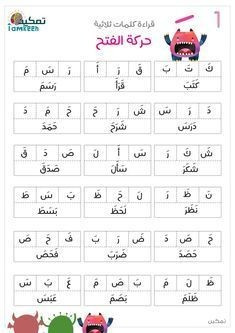 تمكين
Tamkeen
قراءة كلمات ثلاثية
1
حركة الفتح
كَ تَ بَ قَ رَ أَ رَ سَ مَ
كَتَبَ قَرَأَ رَسَمَ
دَ رَ سَ شَ رَ حَ حَ مَ دَ
دَرَسَ شَرَحَ حَمَدَ
شَ كَ رَ سَ أَ لَ صَ دَ قَ
شَكَرَ سَأَلَ صَدَقَ
نَ ظَ رَ لَ حَ ظَ بَ سَ طَ
نَظَرَ لَحَظَ بَسَطَ
حَ صَ دَ ضَ رَ بَ فَ حَ صَ
حَصَدَ ضَرَبَ فَحَصَ
ظَ لَ مَ بَ صَ مَ عَ بَ سَ
ظَلَمَ بَصَمَ عَبَسَ
تمكين